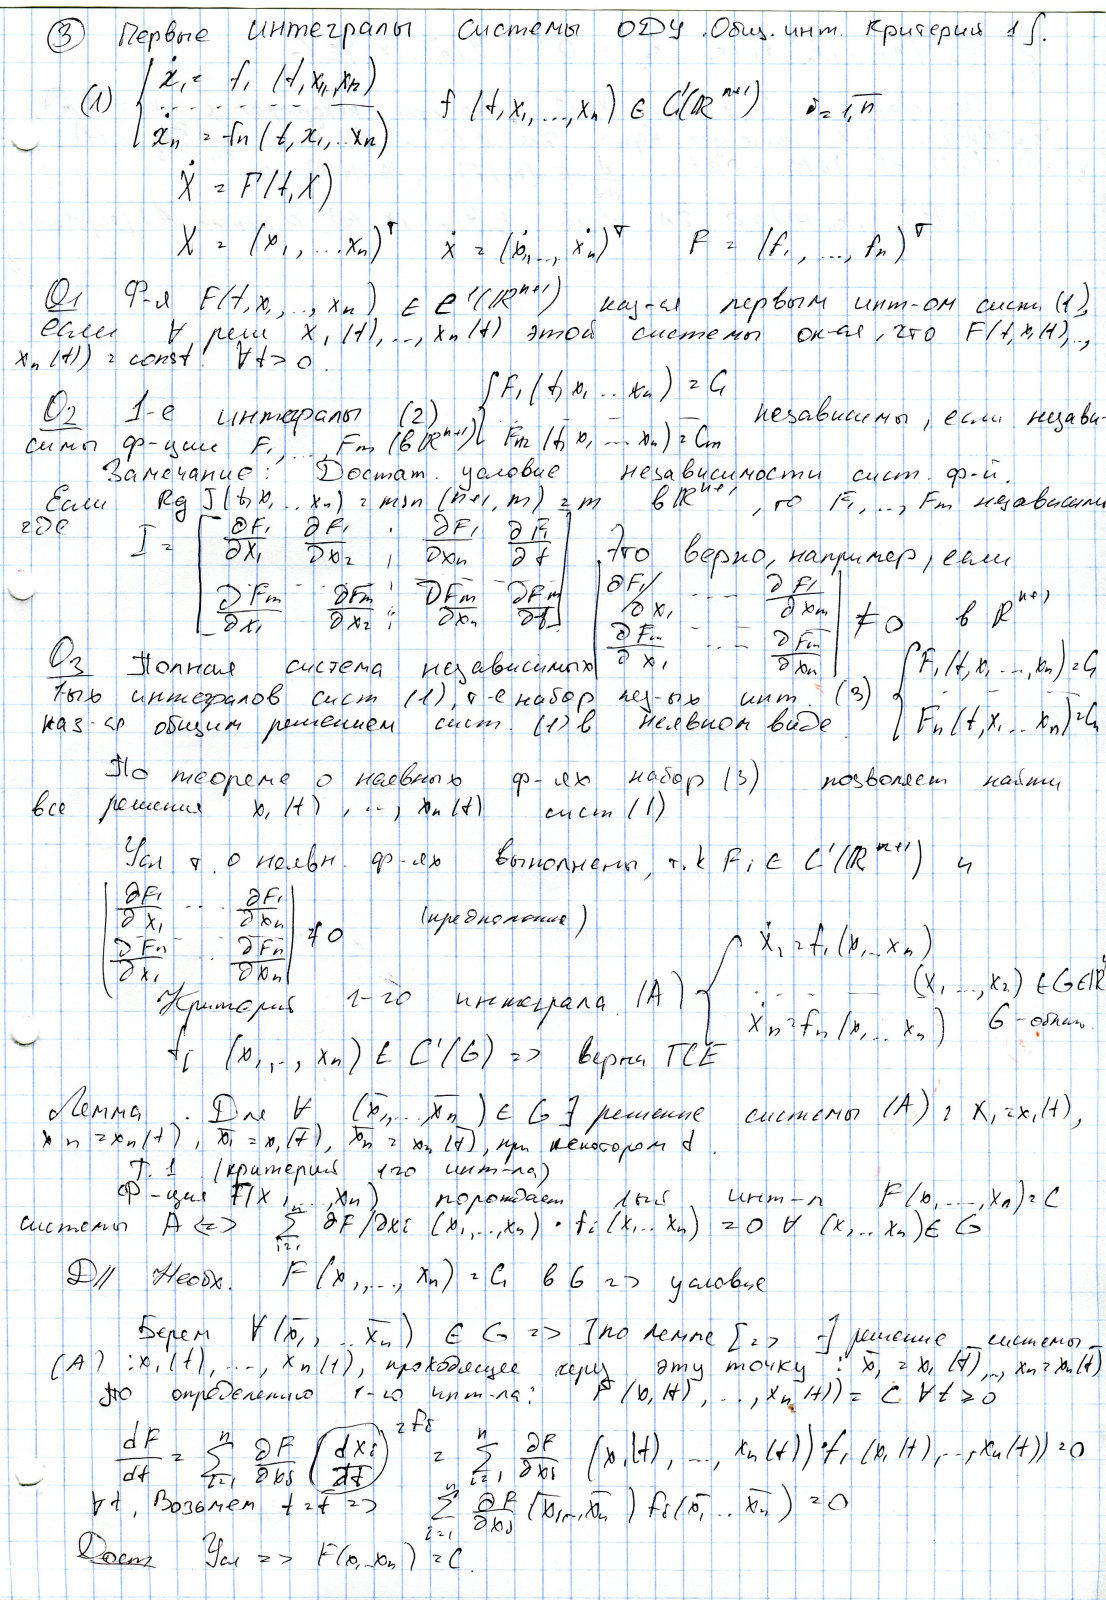 ③ Первые интегралы системы ОДУ. Общ. инт. Критерий 1 ∫.
(1) { ẋ₁ = f₁ (t, x₁, xₙ)
ẋₙ = fₙ (t, x₁, .. xₙ)
f (t, x₁, ..., xₙ) ∈ C¹(ℝⁿ⁺¹) i = 1,n̅
Ẋ = F(t, X)
X = (x₁, ... xₙ)ᵀ ẋ = (ẋ₁, .., ẋₙ)ᵀ F = (f₁, ..., fₙ)ᵀ
О1 Ф-я F(t, x₁, .., xₙ) ∈ C¹(ℝⁿ⁺¹) наз-ся первым инт-ом сист (1),
если ∀ реш x₁(t), ..., xₙ(t) этой системы ок-ся, что F(t, x₁(t), ..,
xₙ(t)) = const ∀t > 0.
О2 1-е интегралы (2) { F₁ (t, x₁ .. xₙ) = C₁
Fm (t, x₁ ... xₙ) = Cm
независимы, если незави-
симы ф-ции F₁, ..., Fm (в ℝⁿ⁺¹)
Замечание: Достат. условие независимости сист. ф-й.
Если Rg J(t, x₁ .. xₙ) = min (n+1, m) = m в ℝⁿ⁺¹, то F₁, .., Fm независимы
где J = [ ∂F₁/∂x₁ ∂F₁/∂x₂ ... ∂F₁/∂xₙ ∂F₁/∂t
∂Fm/∂x₁ ∂Fm/∂x₂ ... ∂Fm/∂xₙ ∂Fm/∂t ]
Это верно, например, если
| ∂F₁/∂x₁ ... ∂F₁/∂xm
∂Fm/∂x₁ ... ∂Fm/∂xm | ≠ 0 в ℝⁿ⁺¹
О3 Полная система независимых
1ых интегралов сист (1), т-е набор нез-ых инт (3) { F₁(t, x₁, .., xₙ) = C₁
Fₙ(t, x₁ .. xₙ) = Cₙ
наз-ся общим решением сист. (1) в неявном виде
По теореме о неявных ф-ях набор (3) позволяет найти
все решения x₁(t), .., xₙ(t) сист (1)
Усл т. о неявн. ф-ях выполнены, т.к Fi ∈ C¹(ℝⁿ⁺¹) и
| ∂F₁/∂x₁ ... ∂F₁/∂xₙ
∂Fₙ/∂x₁ ... ∂Fₙ/∂xₙ | ≠ 0 (предположение)
Критерий 1-го интеграла (A) { ẋ₁ = f₁ (x₁ .. xₙ)
ẋₙ = fₙ (x₁ .. xₙ)
(x₁, ..., x₂) ∈ G ∈ ℝⁿ
G - облас.
fi (x₁, .., xₙ) ∈ C¹(G) => верна ТСЕ
Лемма. Для ∀ (x̄₁, .. x̄ₙ) ∈ G ∃ решение системы (A): x₁ = x₁(t),
xₙ = xₙ(t), x̄₁ = x₁(t̄), x̄ₙ = xₙ(t̄), при некотором t̄.
Т.1 (критерий 1-го инт-ла)
Ф-ция F(x₁, .., xₙ) порождает 1ый инт-л F(x₁, .., xₙ) = C
системы A <=> ∑ᵢ₌₁ⁿ ∂F/∂xi (x₁, .., xₙ) · fi (x₁ .. xₙ) = 0 ∀ (x₁ .. xₙ) ∈ G
Д// Необх. F (x₁, .., xₙ) = C₁ в G => условие
Берем ∀(x̄₁, .. x̄ₙ) ∈ G => ] по лемме [=> ∃] решение системы
(A): x₁(t), .., xₙ(t), проходящее через эту точку: x̄₁ = x₁(t̄), .., x̄ₙ = xₙ(t̄)
По определению 1-го инт-ла: F (x₁(t), ..., xₙ(t)) = C ∀t ≥ 0
dF/dt = ∑ᵢ₌₁ⁿ ∂F/∂xi (dxi/dt) = fi = ∑ᵢ₌₁ⁿ ∂F/∂xi (x₁(t), .., xₙ(t)) · fi (x₁(t), .., xₙ(t)) = 0
∀t, Возьмем t = t̄ => ∑ᵢ₌₁ⁿ ∂F/∂xi (x̄₁, .., x̄ₙ) fi(x̄₁ .. x̄ₙ) = 0
Дост Усл => F(x₁ .. xₙ) = C.